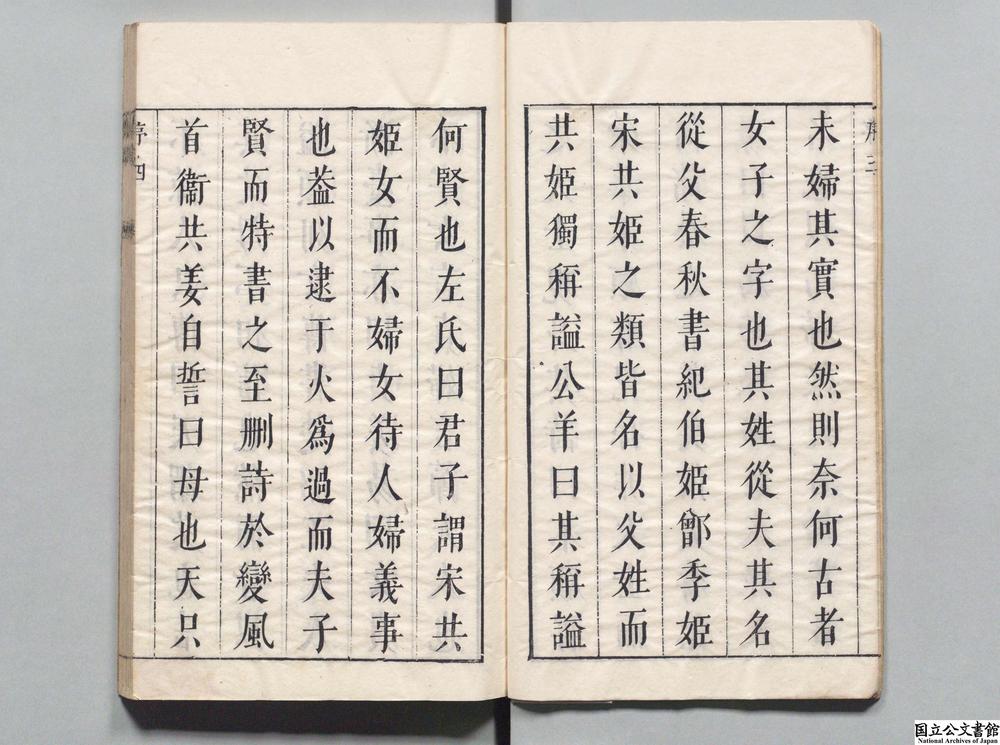 序三
未婦其實也然則奈何古者
女子之字也其姓從夫其名
從父春秋書紀伯姬鄫季姬
宋共姬之類皆名以父姓而
共姬獨稱謚公羊曰其稱謚
何賢也左氏曰君子謂宋共
姬女而不婦女待人婦義事
也葢以逮于火爲過而夫子
賢而特書之至刪詩於變風
首衞共姜自誓曰母也天只
序四
国立公文書館
National Archives of Japan